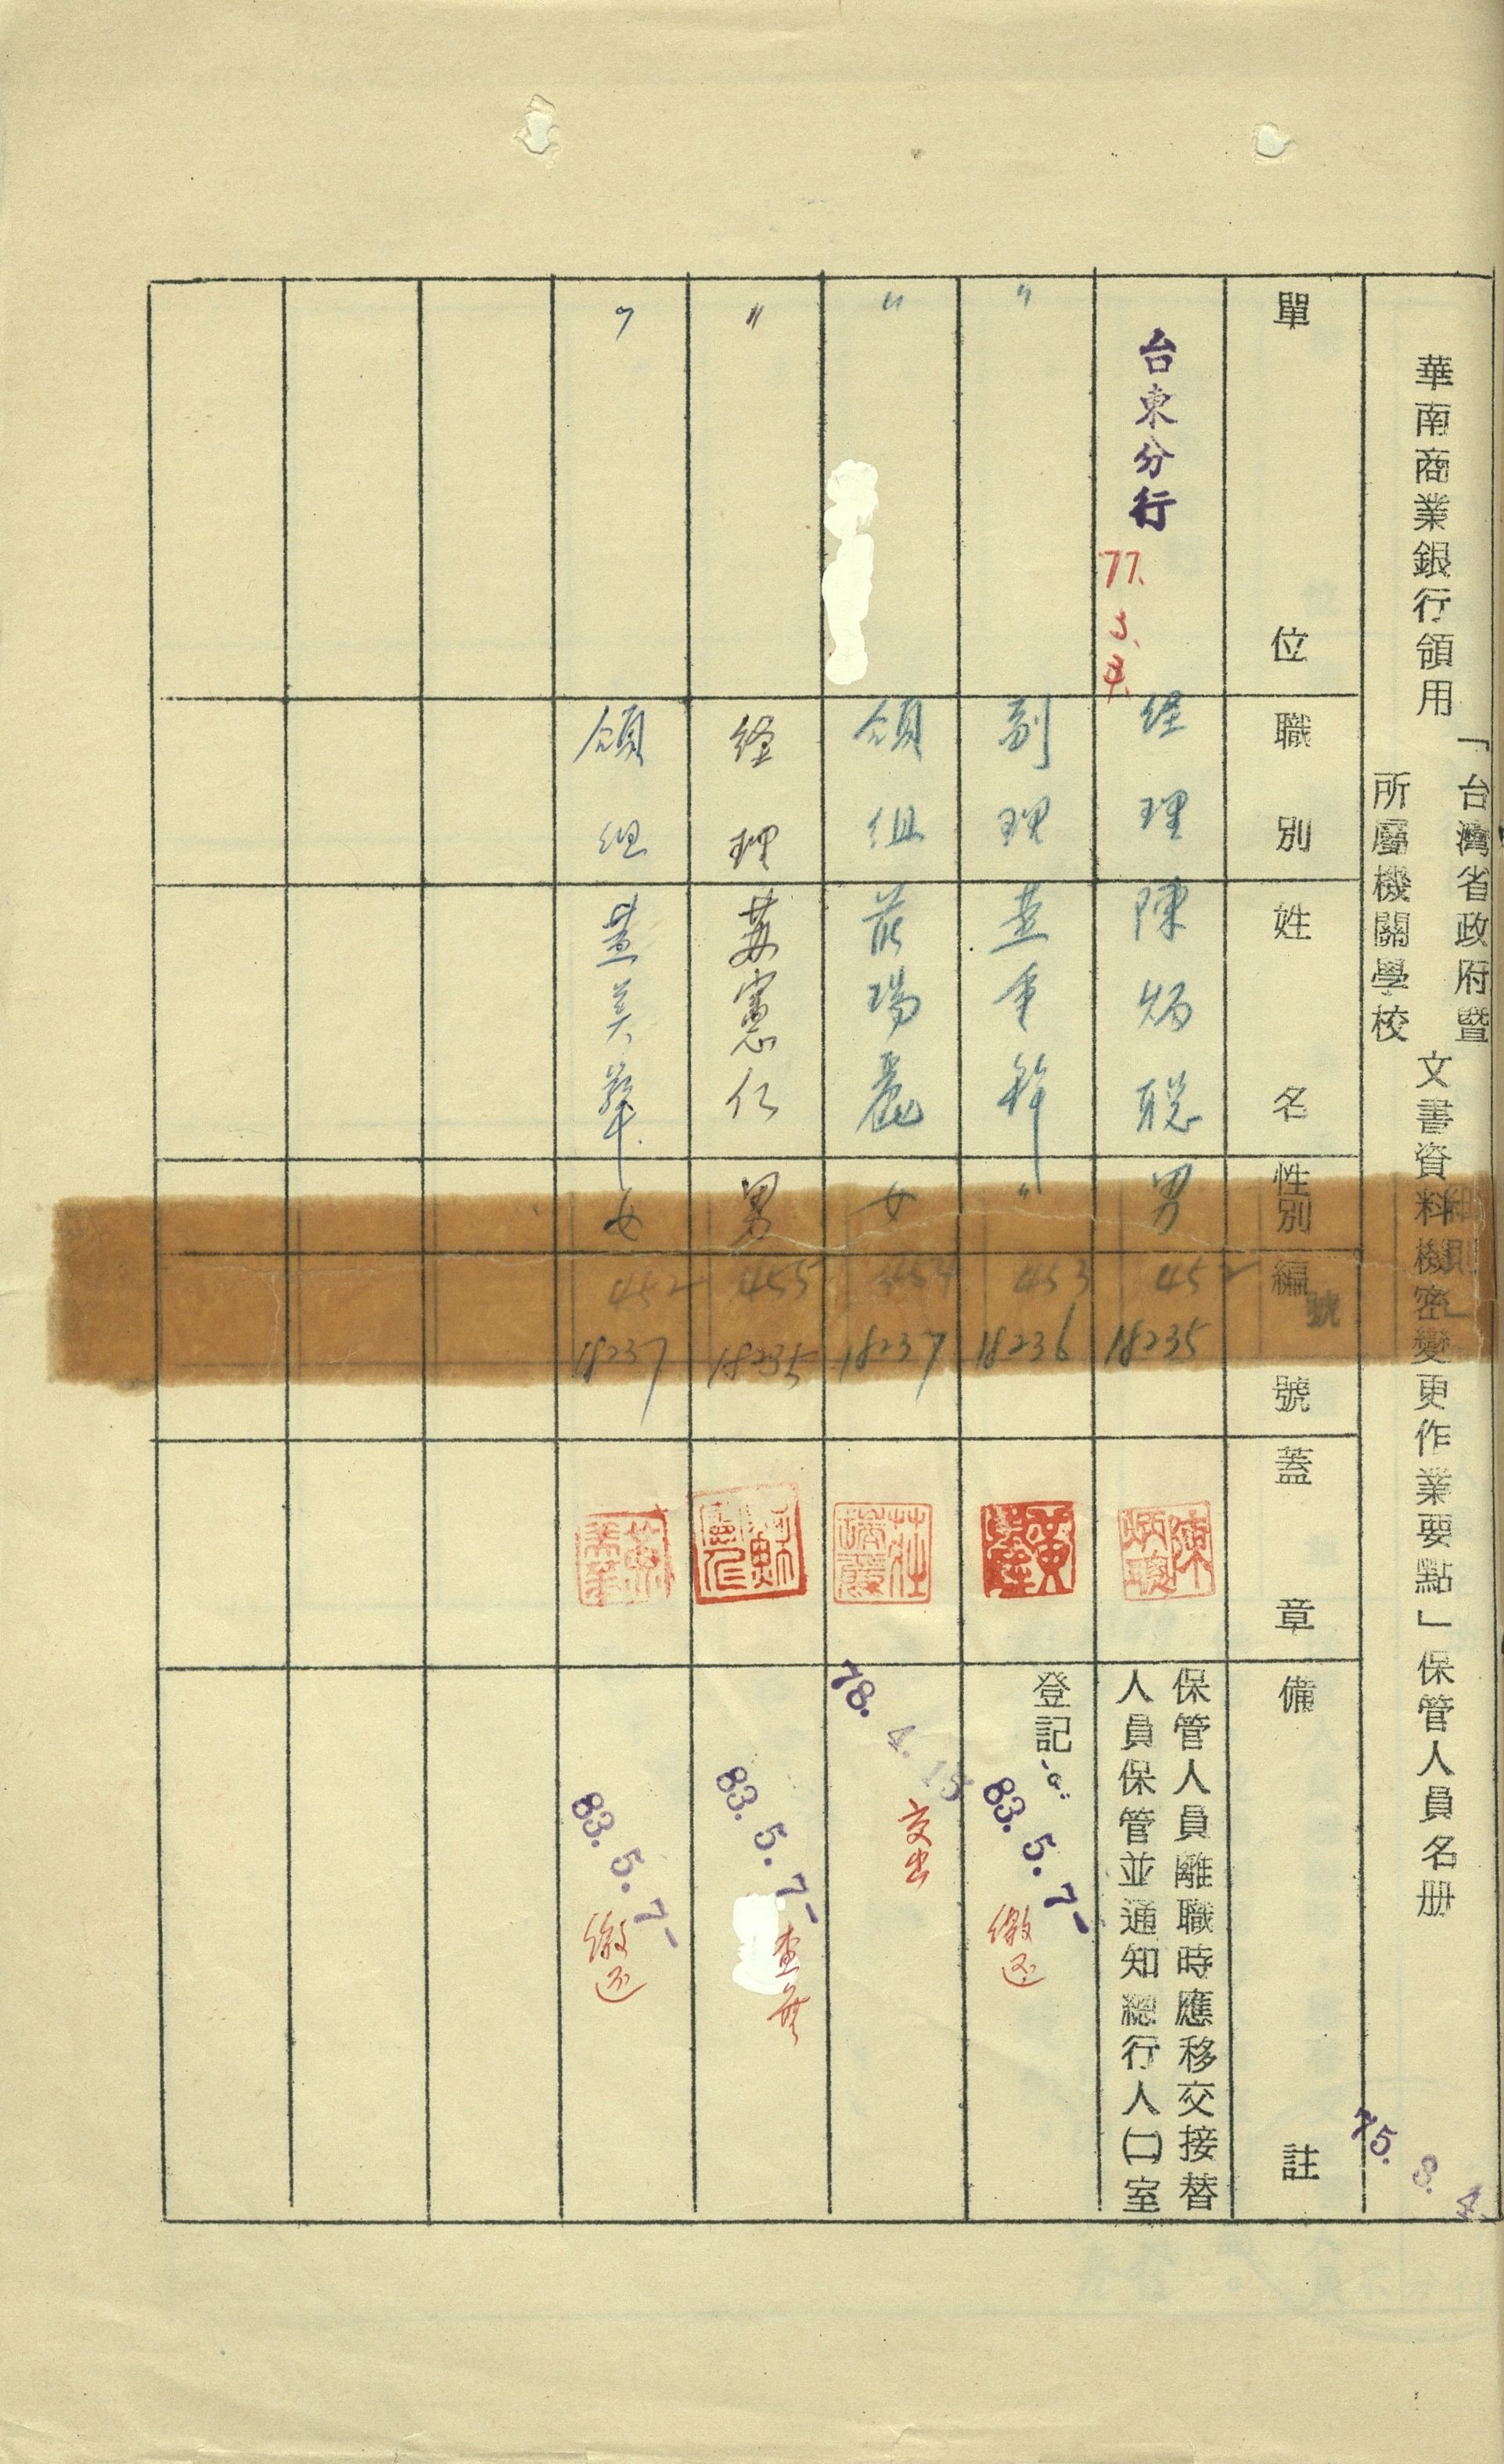 華南商業銀行領用「台灣省政府暨所屬機關學校文書資料機密變更作業要點」保管人員名册
細則」
75. 8. 4.
單位 職別 姓名 性別 編號 蓋章 備註
號
台東分行 77. 3. 4. 経理 陳炳聪 男 452 18235 陳炳聰 保管人員離職時應移交接替
人員保管並通知總行人㈡室
〃 副理 〃 453 18236 黃 登記。 83. 5. 7- 繳还
〃 領組 莊瑞麗 女 454 18237 莊瑞麗 78. 4. 15 交出
〃 経理 蘇憲仁 男 455 18235 蘇憲仁 83. 5. 7- 查無
〃 領組 黃美華 女 452 18237 黃美華 83. 5. 7- 繳还